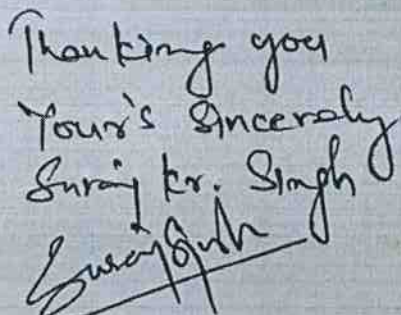 Thanking you
Your's Sincerely
Suraj kr. Singh
Suraj Singh